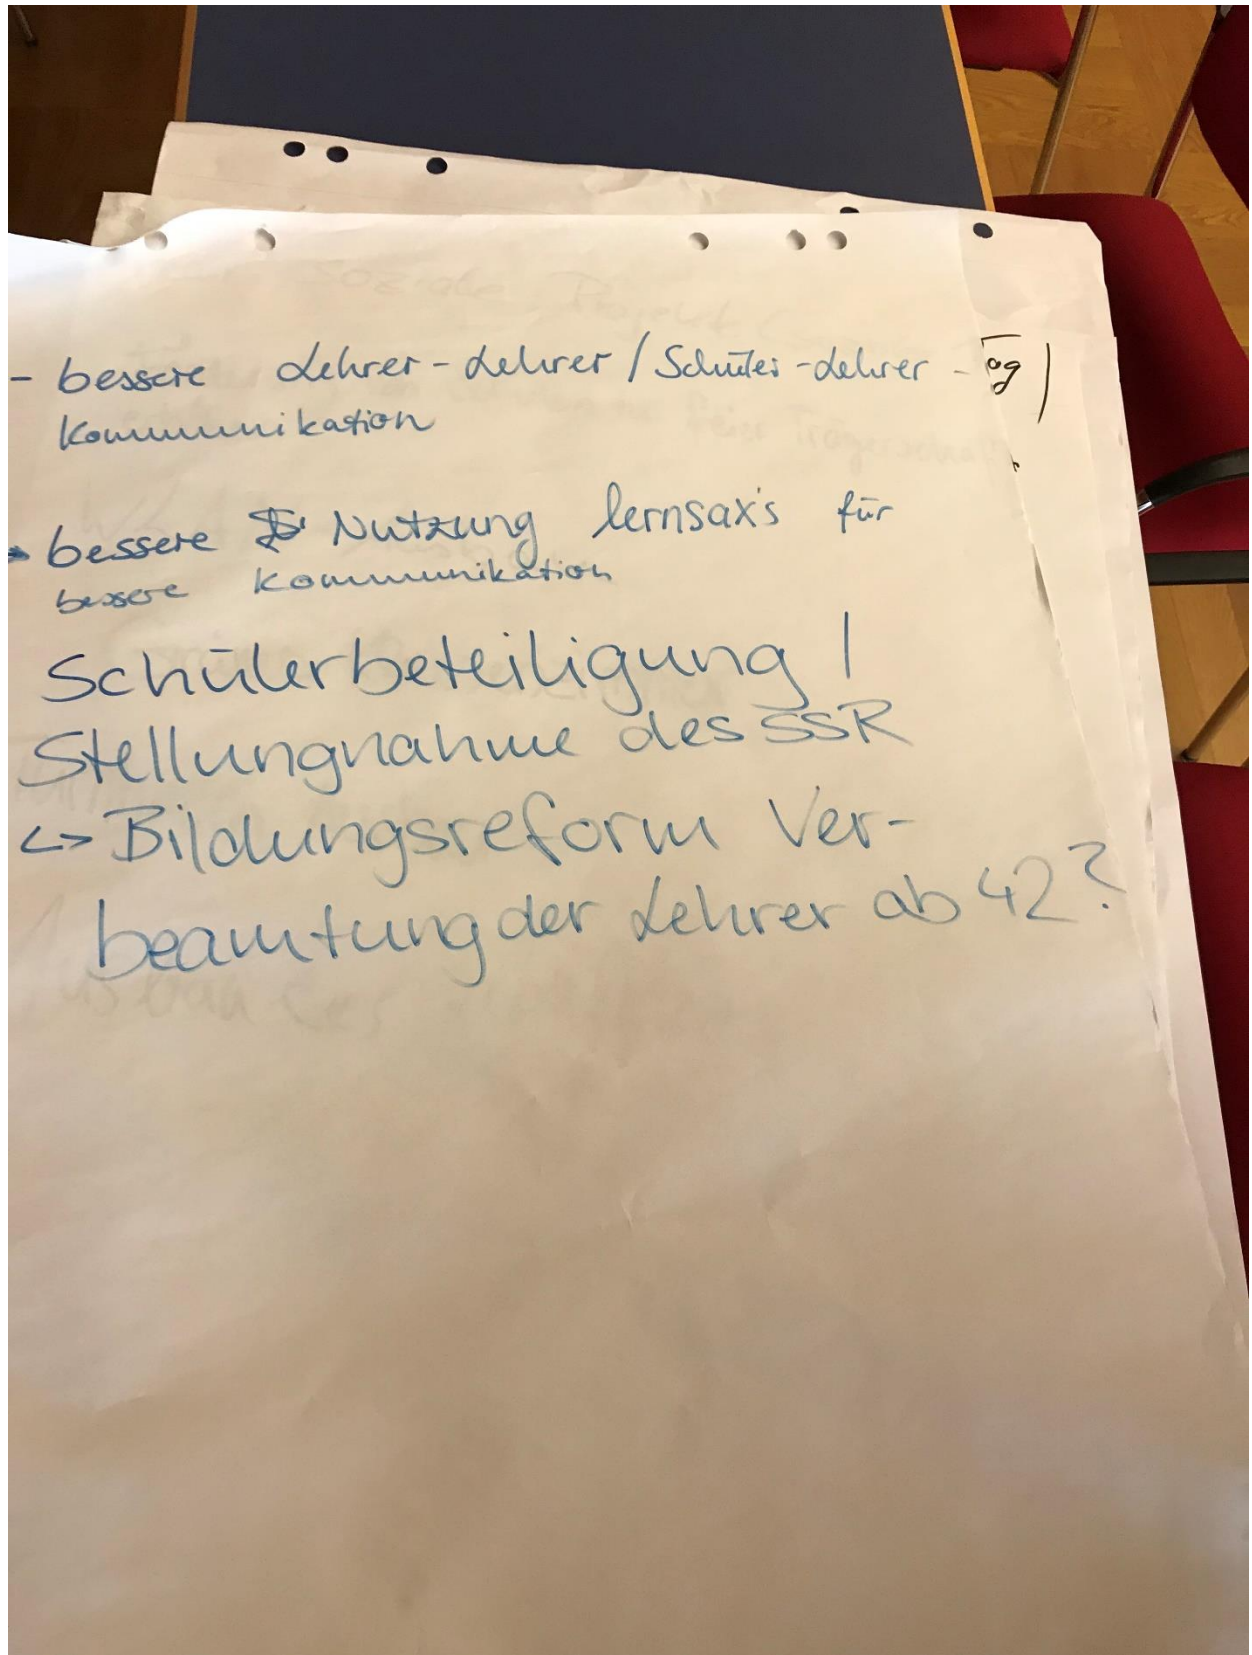 - bessere Lehrer-Lehrer / Schüler-Lehrer -
Kommunikation
- bessere Nutzung lernsax's für
bessere Kommunikation
Schülerbeteiligung /
Stellungnahme des SSR
<-> Bildungsreform Ver-
beamtung der Lehrer ab 42?